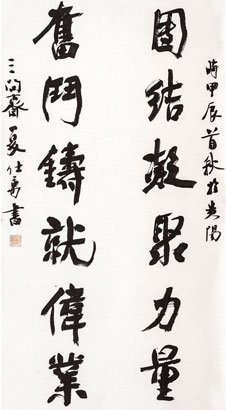 團結凝聚力量
奮鬥鑄就偉業
時甲辰首秋於貴陽
三問齋夏仕勇書